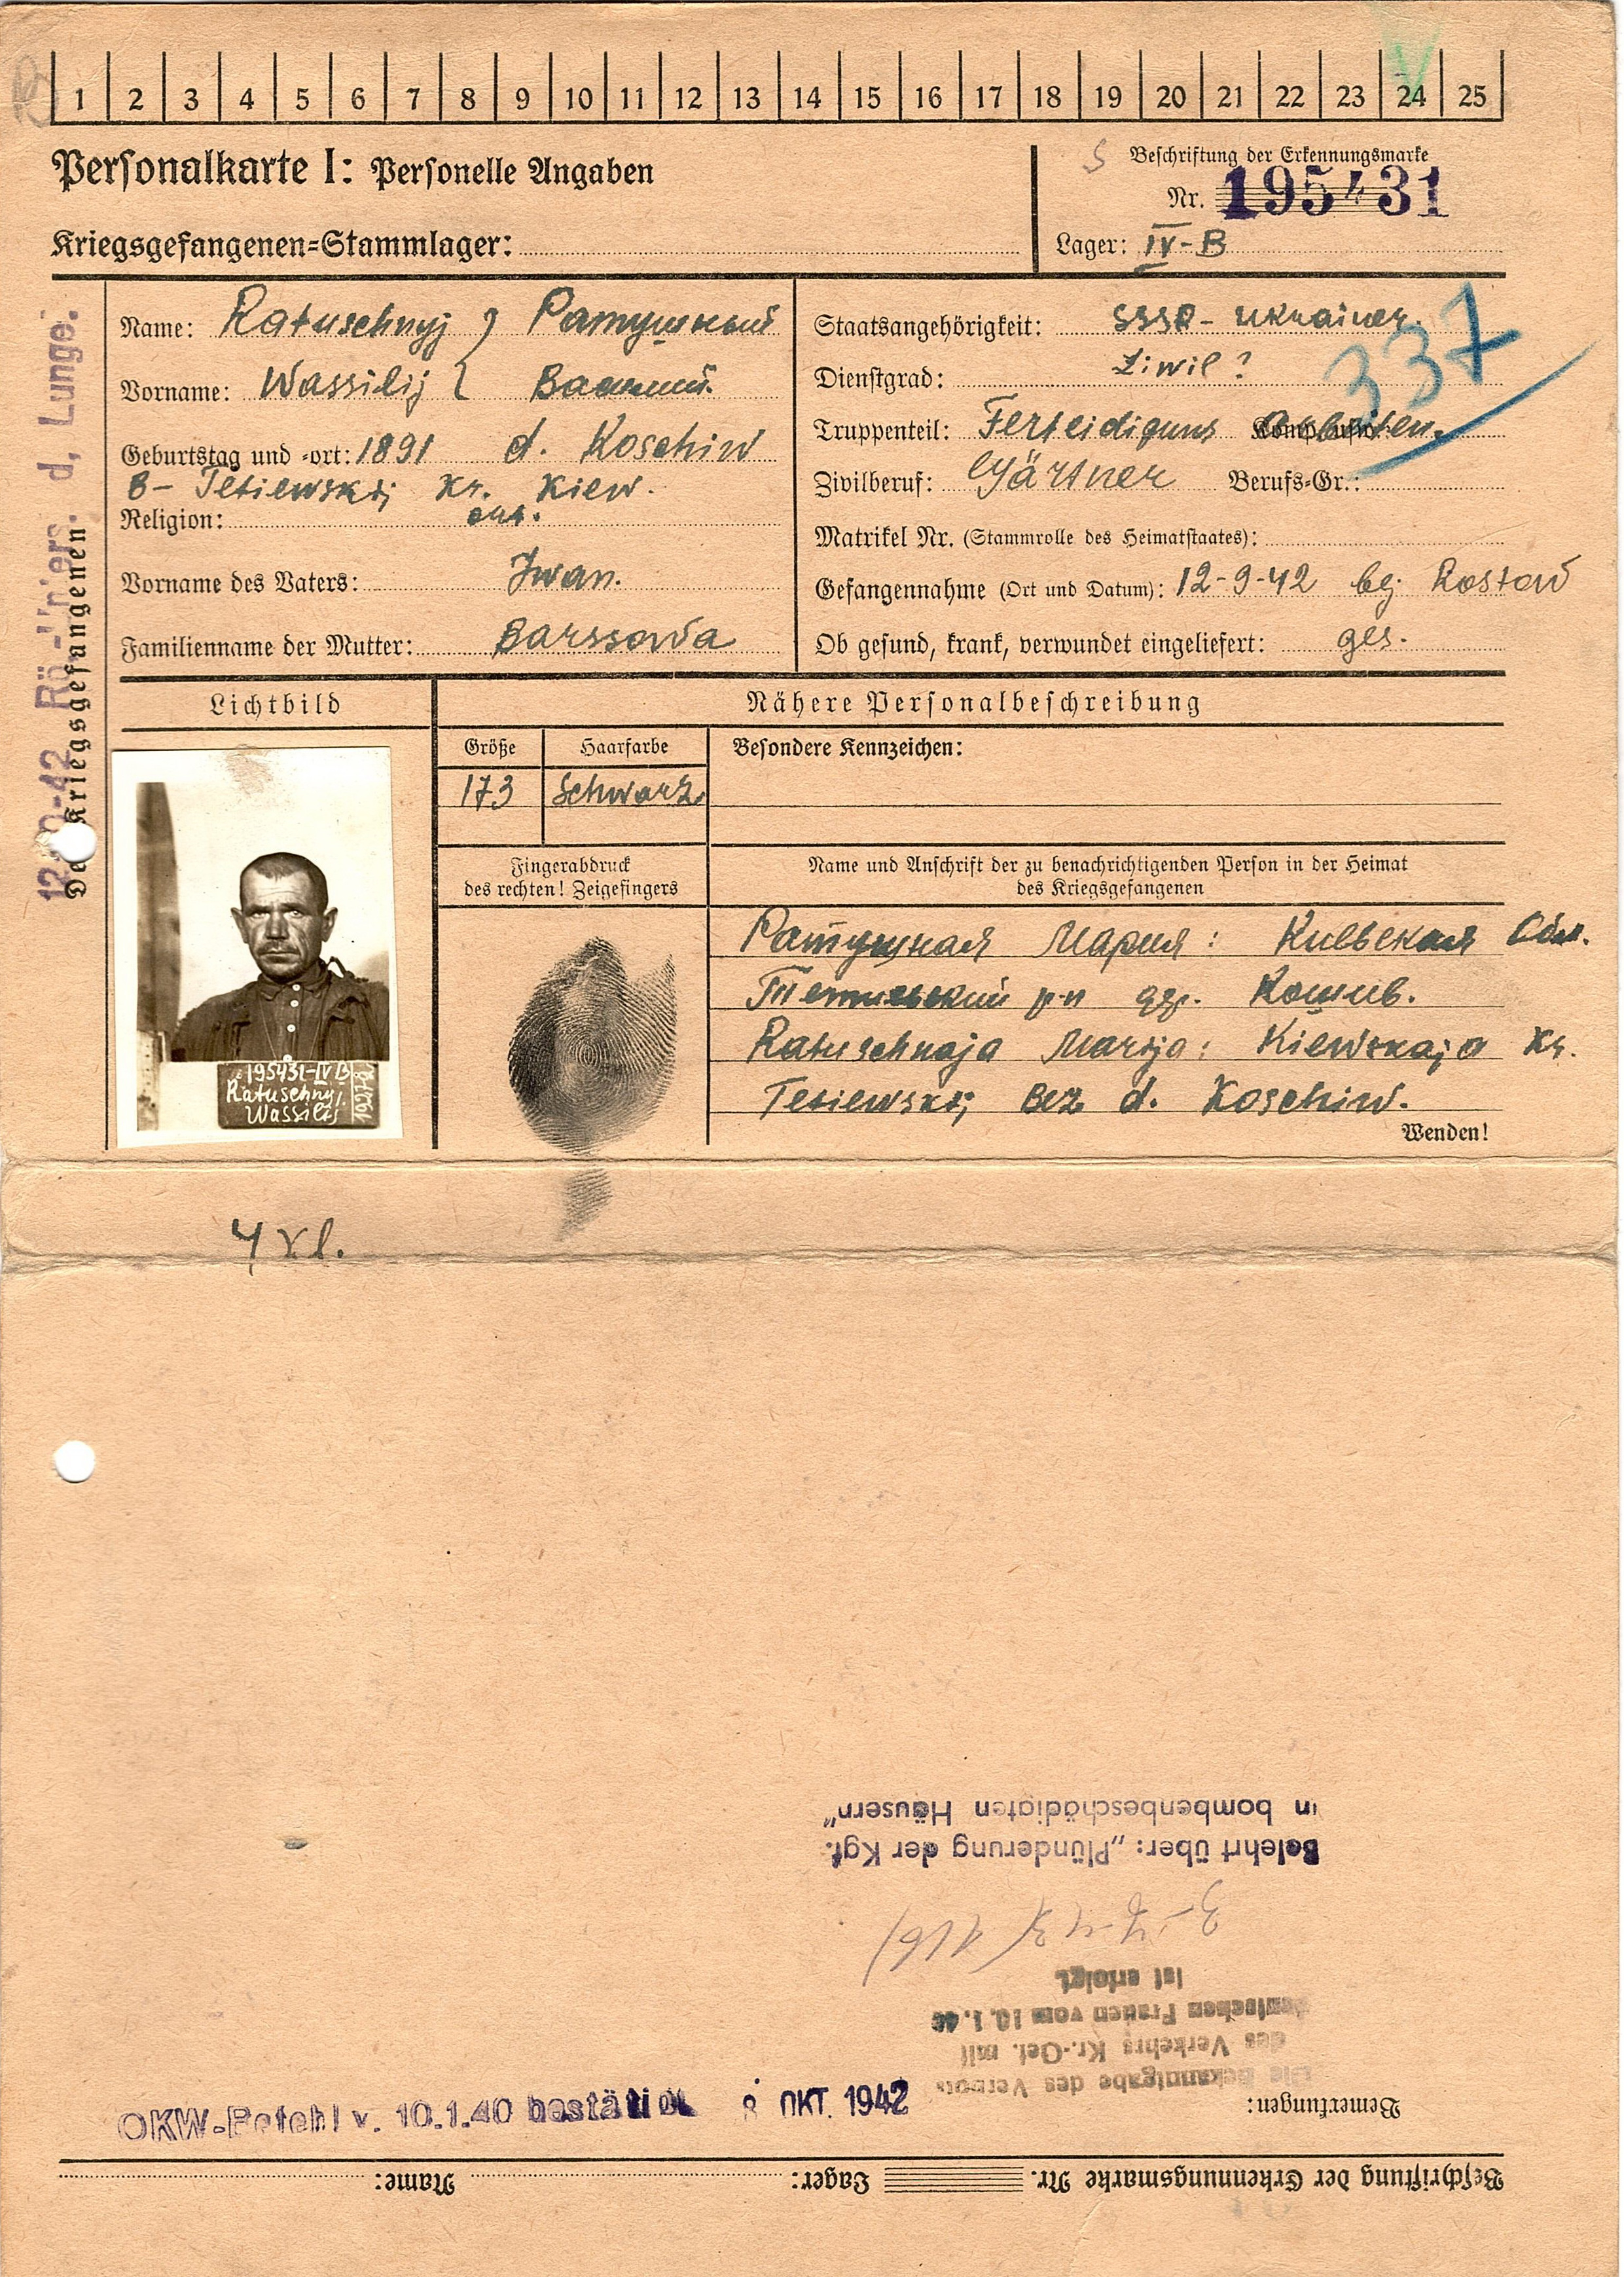 1 2 3 4 5 6 7 8 9 10 11 12 13 14 15 16 17 18 19 20 21 22 23 24 25
Personalkarte I: Personelle Angaben
Kriegsgefangenen-Stammlager:
Beschriftung der Erkennungsmarke
Nr. 195431
Lager: IV-B
Des Kriegsgefangenen
d. Lunge.
Name: Ratuschnyj Ратушный
Vorname: Wassilij Василий
Geburtstag und -ort: 1891 d. Koschiw
B- Tetiewskij Kr. Kiew.
Religion: ort.
Vorname des Vaters: Iwan.
Familienname der Mutter: Barssowa
Staatsangehörigkeit: SSSR- Ukrainer.
337
Dienstgrad: Ziwil?
Truppenteil: Ferteidiguns arbeiten.
Zivilberuf: Gärtner Berufs-Gr.:
Matrikel Nr. (Stammrolle des Heimatstaates):
Gefangennahme (Ort und Datum): 12-9-42 bej Rostow
Ob gesund, krank, verwundet eingeliefert: ges.
Lichtbild
Nähere Personalbeschreibung
Größe Haarfarbe Besondere Kennzeichen:
173 Schwarz
Fingerabdruck
des rechten! Zeigefingers
Name und Anschrift der zu benachrichtigenden Person in der Heimat
des Kriegsgefangenen
Ратушная Мария: Киевская Обл.
Тетиевский р-н дер. Кошив.
Ratuschnaja Marija: Kiewskaja Kr.
Tetiewskij Bez d. Koschiw.
Wenden!
195431-IVB
Ratuschnyj.
Wassilij
Beschriftung der Erkennungsmarke Nr. Lager: Name:
Bemerkungen:
OKW-Befehl v. 10.1.40 bestätigt 8 OKT. 1942
Die Bekanntgabe des Verbots
des Verkehrs Kr.-Gef. mit
deutschen Frauen vom 10.1.40
ist erfolgt
Belehrt über: „Plünderung der Kgf.
in bombenbeschädigten Häusern"